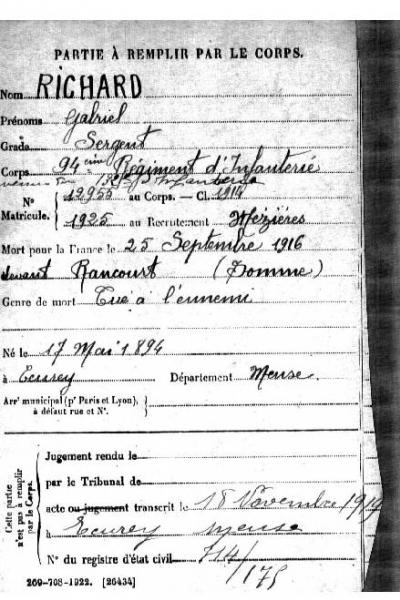 PARTIE À REMPLIR PAR LE CORPS.
Nom RICHARD
Prénoms Gabriel
Grade Sergent
Corps 94eme Régiment d'Infanterie
venu du d'Infanterie
N° 12955 au Corps. — Cl. 1914
Matricule. 1925 au Recrutement Mézières
Mort pour la France le 25 Septembre 1916
devant Rancourt (Somme)
Genre de mort Tué à l'ennemi
Né le 17 Mai 1894
à Ecurey Département Meuse.
Arrt municipal (pr Paris et Lyon),
à défaut rue et N°.
Cette partie
n'est pas à remplir
par le Corps.
Jugement rendu le
par le Tribunal de
acte ou jugement transcrit le 18 Novembre 1919
à Ecurey Meuse
N° du registre d'état civil 714/175
269-708-1922. [26434]